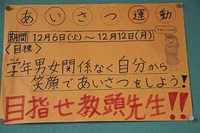 あいさつ運動
期間 12月6日(火)～12月12日(月)
<目標>
学年男女関係なく自分から
笑顔であいさつをしよう!
目指せ教頭先生!!